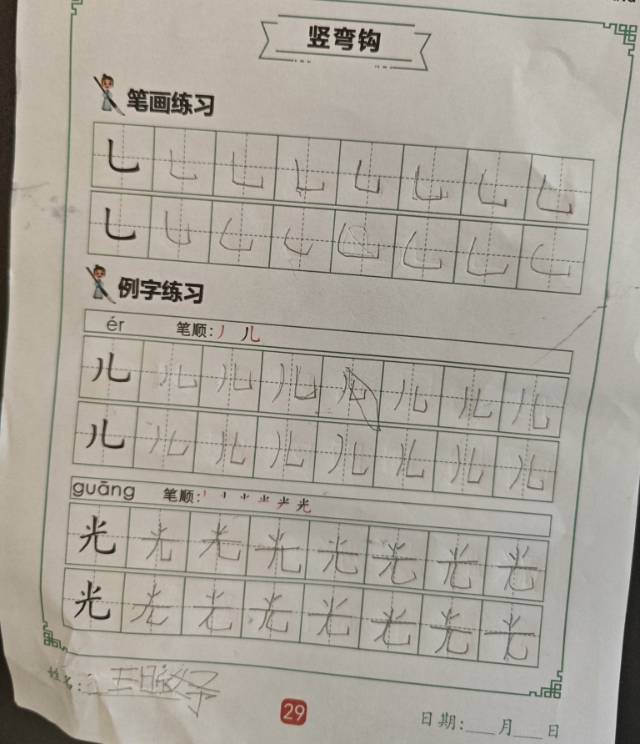 竖弯钩
笔画练习
乚 乚 乚 乚 乚 乚 乚 乚
乚 乚 乚 乚 乚 乚 乚 乚
例字练习
ér 笔顺: 丿 儿
儿 儿 儿 儿 儿 儿 儿 儿
儿 儿 儿 儿 儿 儿 儿 儿
guāng 笔顺:
光 光 光 光 光 光 光 光
光 光 光 光 光 光 光 光
姓名:
29
日期:___月___日